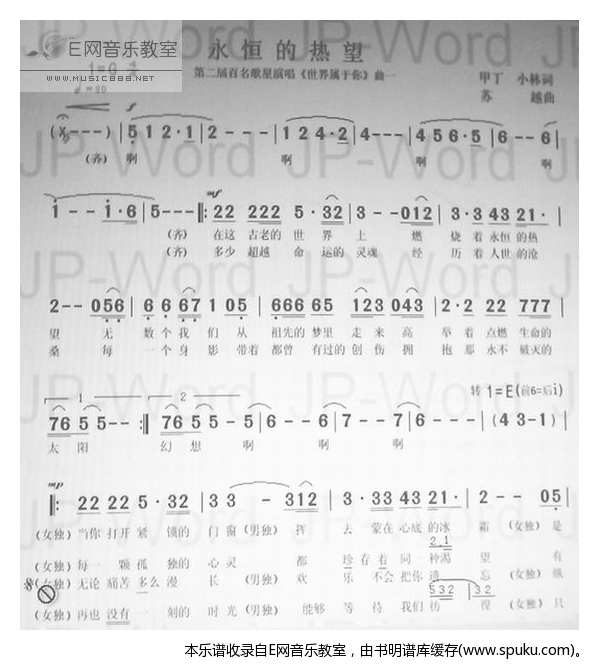 E网音乐教室
WWW.MUSIC888.NET
永恒的热望
第二届百名歌星演唱《世界属于你》曲一
甲丁 小林词
苏 越曲
(X---)|5 1 2·1|2---|1 2 4·2|4---|4 5 6·5|6--6|
(齐)啊 啊 啊 啊
i--i·6|5---|: 22 222 5·32|3--012|3·3 43 21·|
(齐) 在这 古老的 世 界 上 燃 烧 着 永恒 的热
(齐) 多少 超越 命 运的 灵魂 经 历 着 人世 的沧
2--056|6 6 67 1 05|666 65 123 043|2·2 22 777|
望 无 数 个 我 们 从 祖先的 梦里 走 来 高 举 着 点燃 生命的
桑 每 一 个 身 影 带着 都曾 有过的 创伤 拥 抱 那 永不 破灭的
1 2
转1=E(前6=后i)
76 5 5--:|76 5 5-5|6--6|7--7|6---|(4 3-1)|
太 阳 幻 想 啊 啊 啊
mp
|: 22 22 5·32|3 3 - 312|3·33 43 21·|2--05|
(女独) 当你 打开 紧 锁的 门 窗(男独) 挥 去 蒙在 心底 的冰 霜 (女独) 是
2·1
(女独) 每一 颗 孤 独的 心 灵 都 珍 存着 同一 种渴 望 有
(女独) 无论 痛苦 多么 漫 长 (男独) 欢 乐 不会 把你 遗 忘 (女独) 纵
532 32
(女独) 再也 没有 一 刻的 时 光(男独) 能够 等 待 我们 彷 徨 (女独) 只
本乐谱收录自E网音乐教室，由书明谱库缓存(www.spuku.com)。
JP-Word JP-Word
JP-Word JP-Word
JP-Word JP-Word